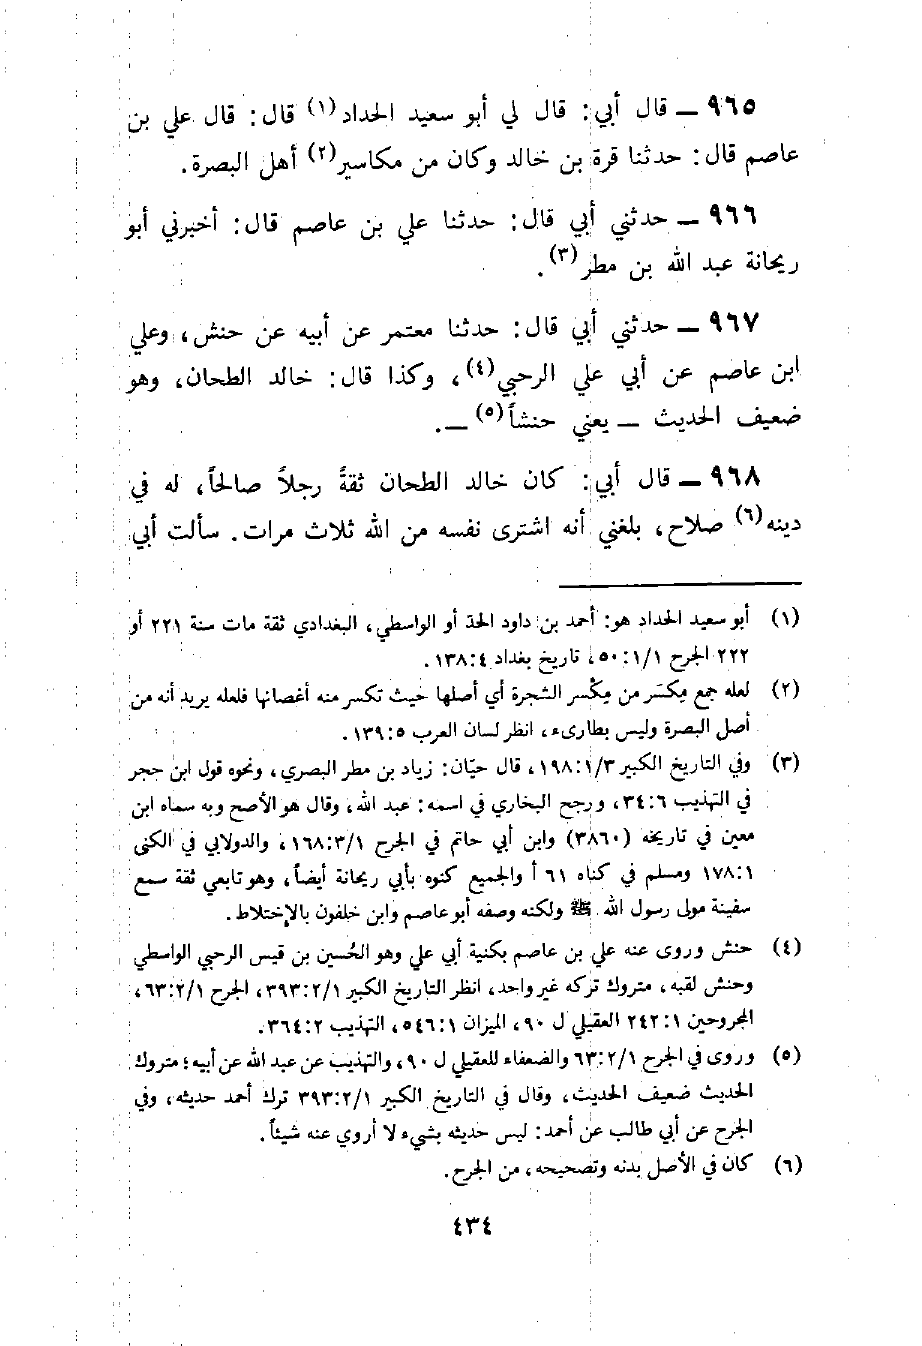 ٩٦٥ ــ قال أبي: قال لي أبو سعيد الحداد(١) قال: قال علي بن
عاصم قال: حدثنا قرة بن خالد وكان من مكاسير(٢) أهل البصرة.
٩٦٦ ــ حدثني أبي قال: حدثنا علي بن عاصم قال: أخبرني أبو
ريحانة عبد الله بن مطر(٣).
٩٦٧ ــ حدثني أبي قال: حدثنا معتمر عن أبيه عن حنش، وعلي
ابن عاصم عن أبي علي الرحبي(٤)، وكذا قال: خالد الطحان، وهو
ضعيف الحديث ــ يعني حنشاً(٥) ــ.
٩٦٨ ــ قال أبي: كان خالد الطحان ثقةً رجلاً صالحاً، له في
دينه(٦) صلاح، بلغني أنه اشترى نفسه من الله ثلاث مرات. سألت أبي
(١) أبو سعيد الحداد هو: أحمد بن داود الحدّ أو الواسطي، البغدادي ثقة مات سنة ٢٢١ أو
٢٢٢ الجرح ١/١:٥٠، تاريخ بغداد ٤:١٣٨.
(٢) لعله جمع مِكسَر من مِكْسر الشجرة أي أصلها حيث تكسر منه أغصانها فلعله يريد أنه من
أصل البصرة وليس بطارىء، انظر لسان العرب ٥:١٣٩.
(٣) وفي التاريخ الكبير ١/٣:١٩٨، قال حيّان: زياد بن مطر البصري، ونحوه قول ابن حجر
في التهذيب ٦:٣٤، ورجح البخاري في اسمه: عبد الله، وقال هو الأصح وبه سماه ابن
معين في تاريخه (٣٨٦٠) وابن أبي حاتم في الجرح ١/٣:١٦٨، والدولابي في الكنى
١:١٧٨ ومسلم في كناه ٦١ أ والجميع كنوه بأبي ريحانة أيضاً، وهو تابعي ثقة سمع
سفينة مولى رسول الله ﷺ ولكنه وصفه أبو عاصم وابن خلفون بالإختلاط.
(٤) حنش وروى عنه علي بن عاصم بكنية أبي علي وهو الحُسين بن قيس الرحبي الواسطي
وحنش لقبه، متروك تركه غير واحد، انظر التاريخ الكبير ١/٢:٣٩٣، الجرح ١/٢:٦٣،
المجروحين ١:٢٤٢ العقيلي ل ٩٠، الميزان ١:٥٤٦، التهذيب ٢:٣٦٤.
(٥) وروى في الجرح ١/٢:٦٣ والضعفاء للعقيلي ل ٩٠، والتهذيب عن عبد الله عن أبيه؛ متروك
الحديث ضعيف الحديث، وقال في التاريخ الكبير ١/٢:٣٩٣ ترك أحمد حديثه، وفي
الجرح عن أبي طالب عن أحمد: ليس حديثه بشيء لا أروي عنه شيئاً.
(٦) كان في الأصل بدنه وتصحيحه، من الجرح.
٤٣٤